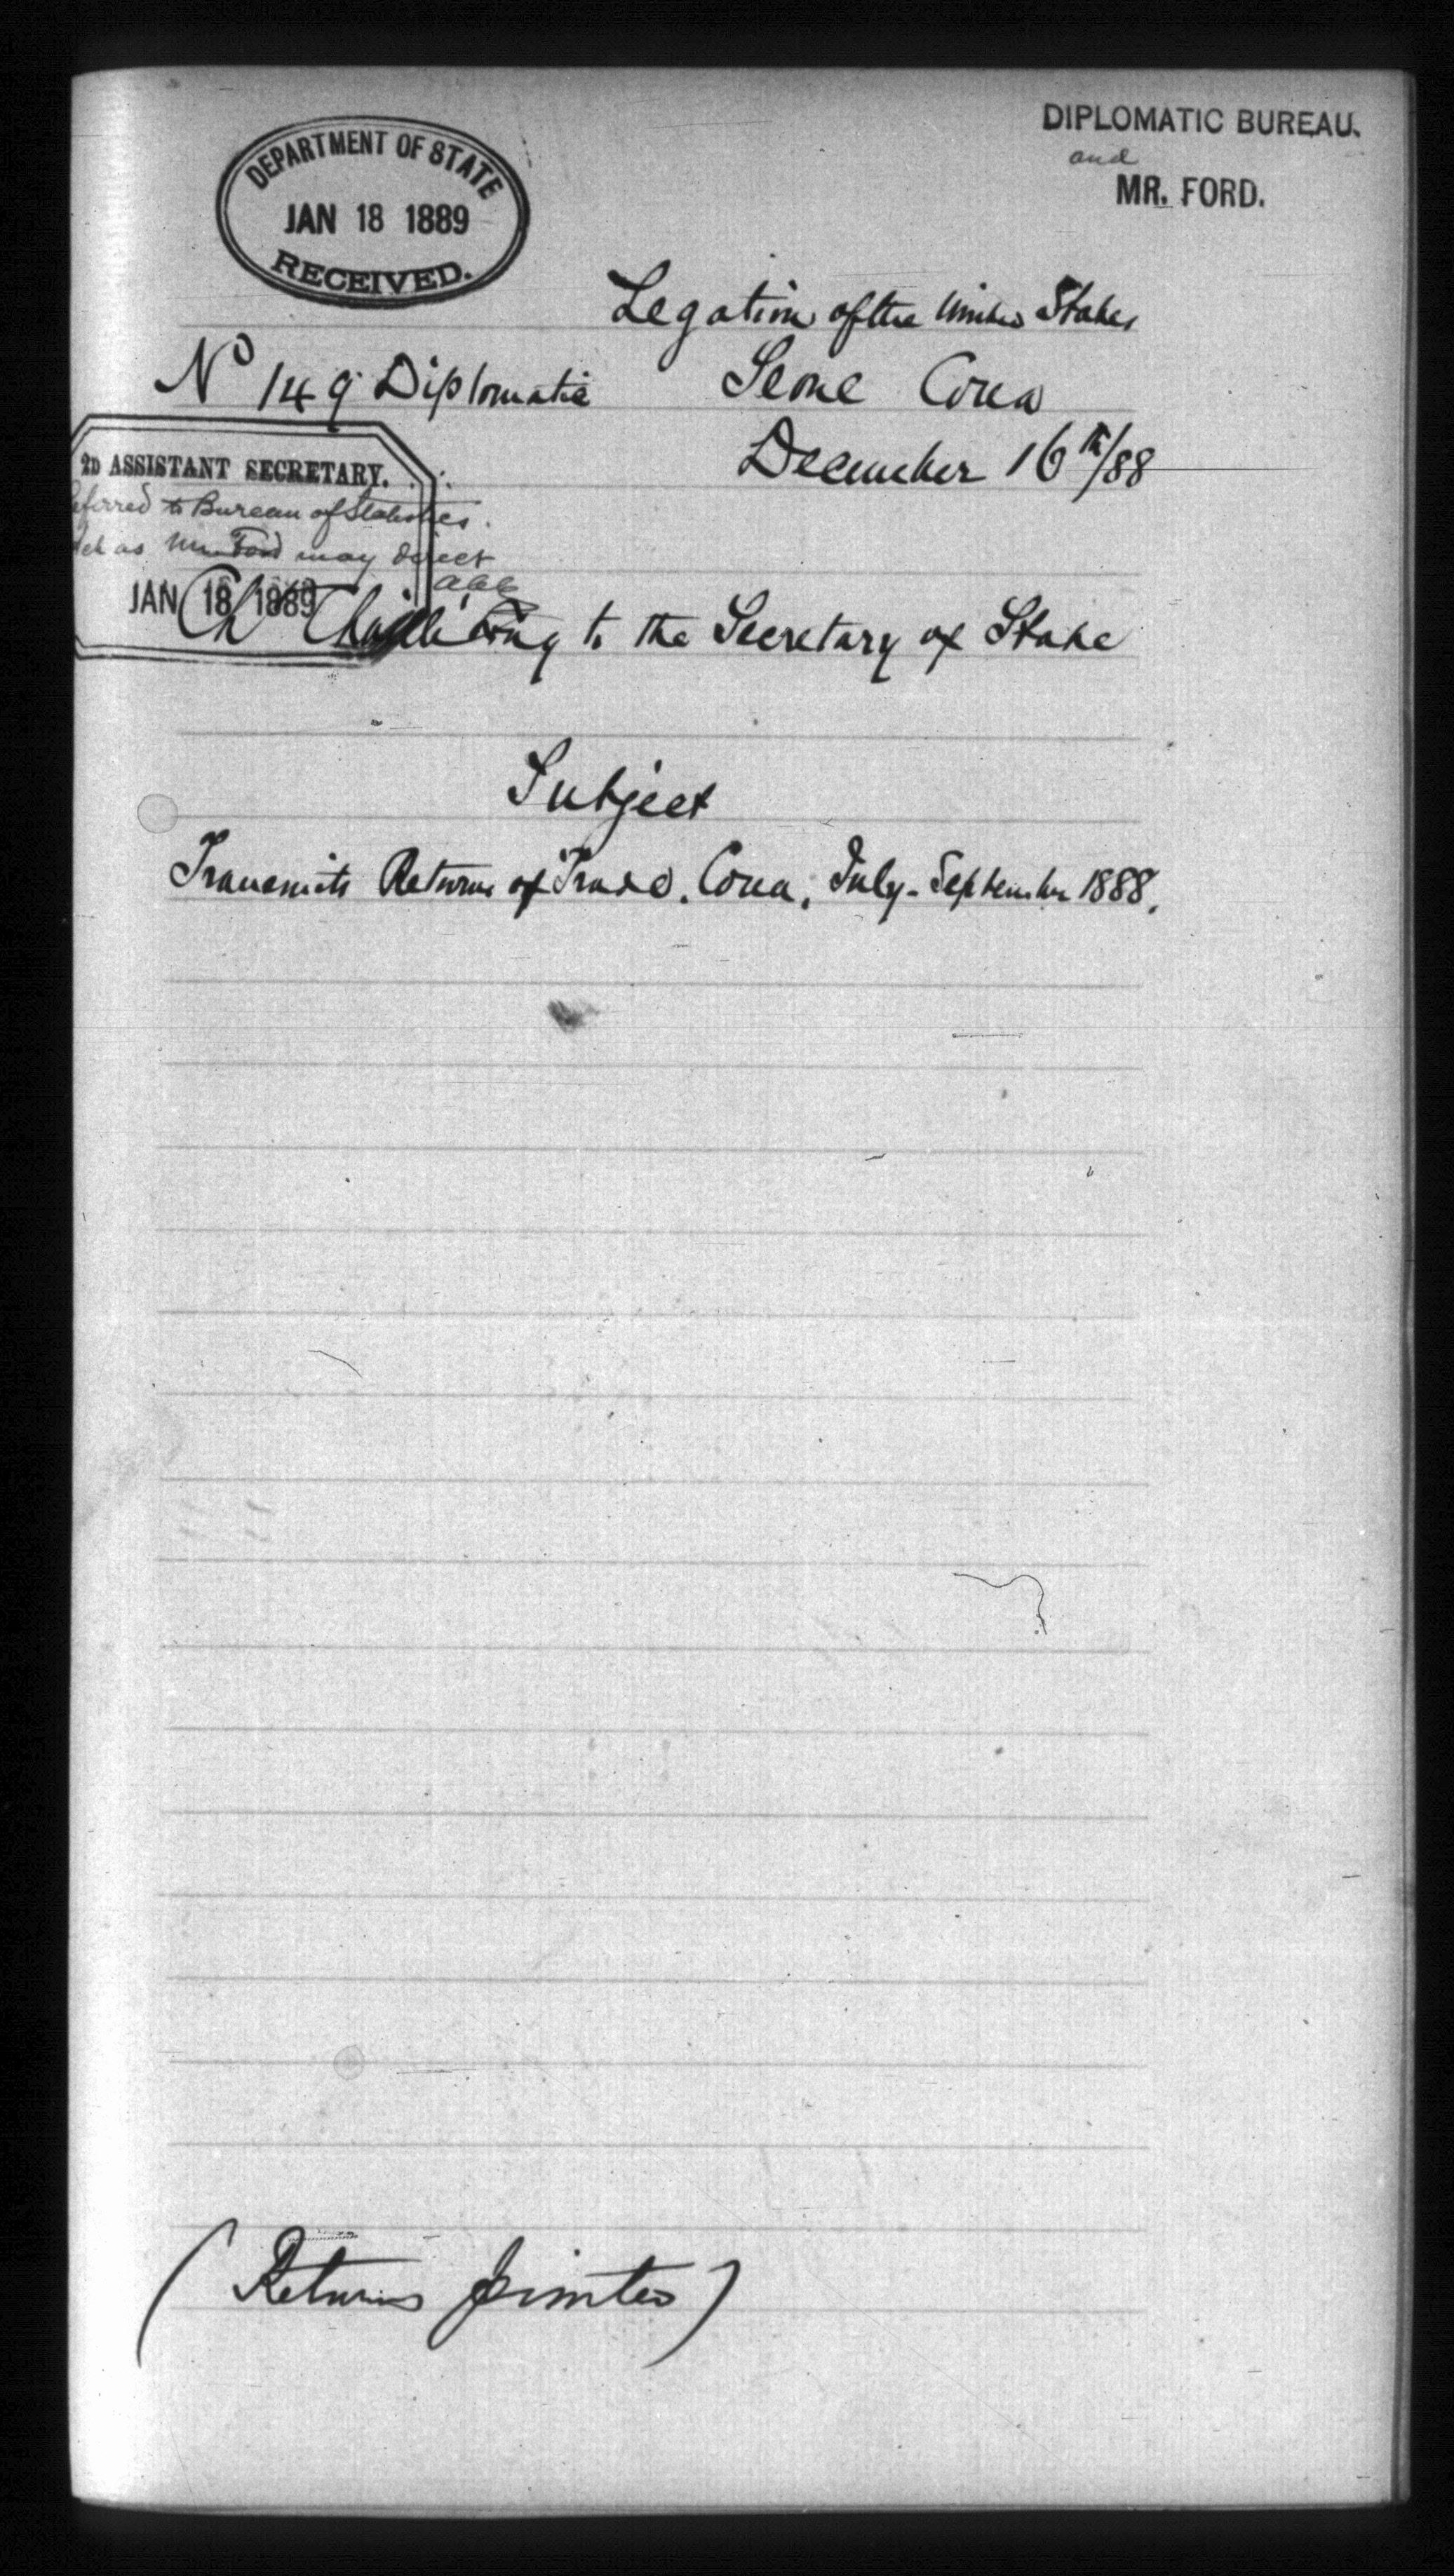 DIPLOMATIC BUREAU.
and
MR. FORD.
DEPARTMENT OF STATE
JAN 18 1889
RECEIVED.
Legation of the United States
No 149 Diplomatic
Seoul Corea
December 16th/88
2D ASSISTANT SECRETARY.
eferred to Bureau of Statistics.
as Mr. Ford may direct
JAN 18 1889
Ch Chaillé Long to the Secretary of State
Subject
Transmits Returns of Trade. Corea, July-September 1888.
(Returns printed)